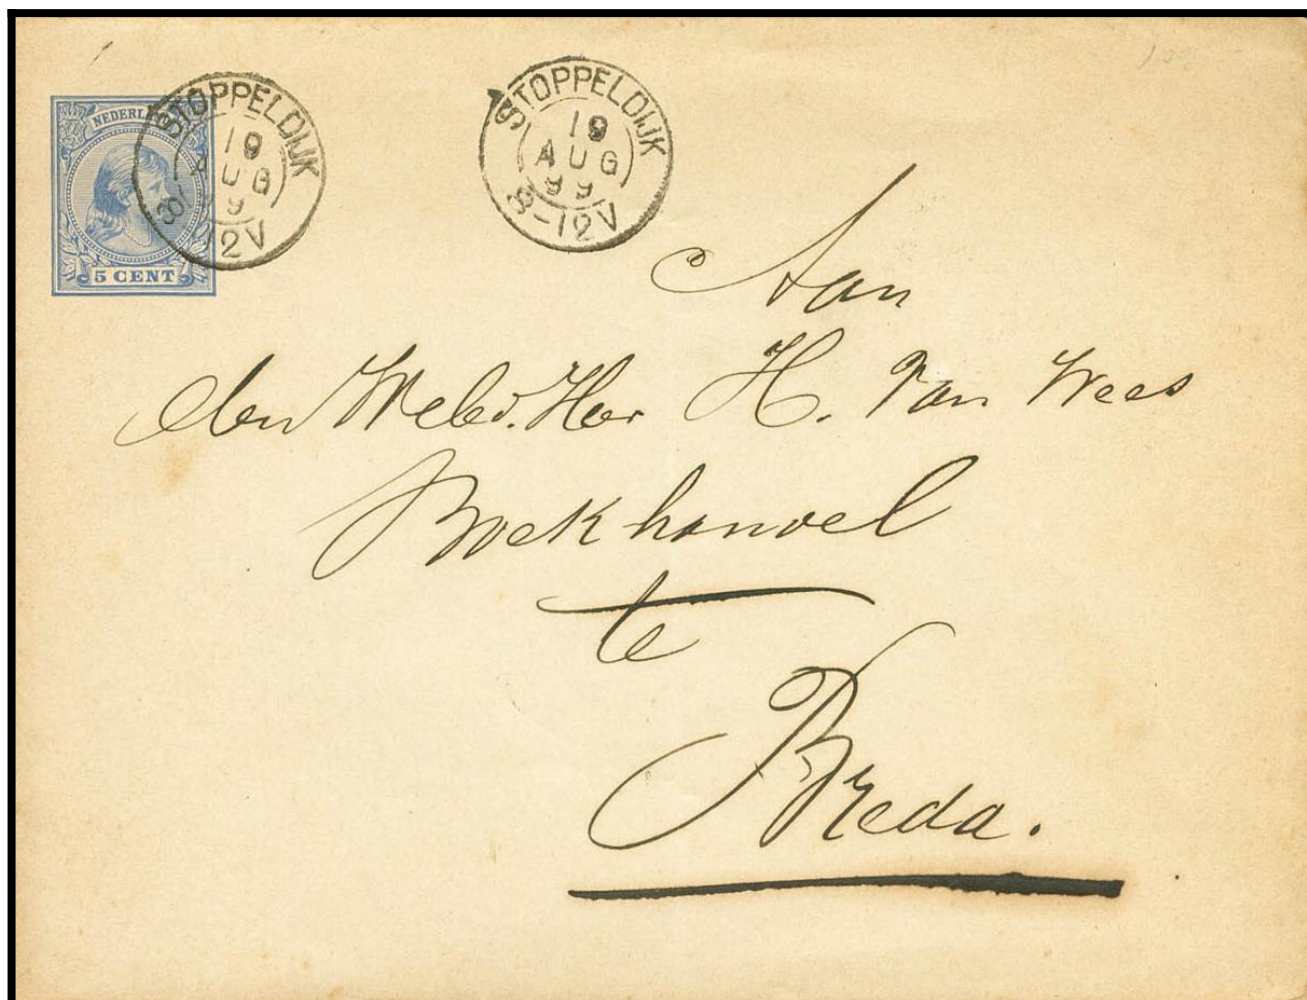 NEDERL
5 CENT
STOPPELDIJK
19
AUG
9
8-12V
STOPPELDIJK
19
AUG
99
8-12V
Aan
den Weled. Heer H. Van Wees
Boekhandel
te
Breda.